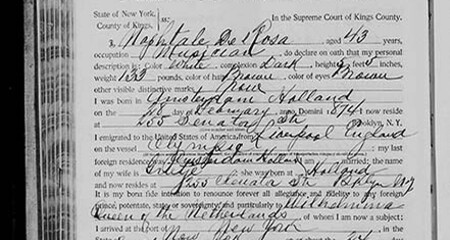 State of New York,
County of Kings. ss.: In the Supreme Court of Kings County.
I, Naphtale Del Rosa aged 43 years,
occupation Musician, do declare on oath that my personal
description is: Color White complexion Dark height 5 feet 5 inches,
weight 133 pounds, color of hair Brown color of eyes Brown
other visible distinctive marks None
I was born in Amsterdam Holland
on the 28 day of February anno Domini 1874 I now reside
at 255 Senator St. Brooklyn, N.Y.
I emigrated to the United States of America, from Liverpool England
on the vessel Olympic my last
foreign residence was Amsterdam Holland married; the name
of my wife is she was born at Holland
and now resides at 255 Senator St. Bklyn NY
It is my bona fide intention to renounce forever all allegiance and fidelity to any foreign
prince, potentate, state or sovereignty, and particularly to Wilhelmina
Queen of the Netherlands of whom I am now a subject;
I arrived at the port of New York